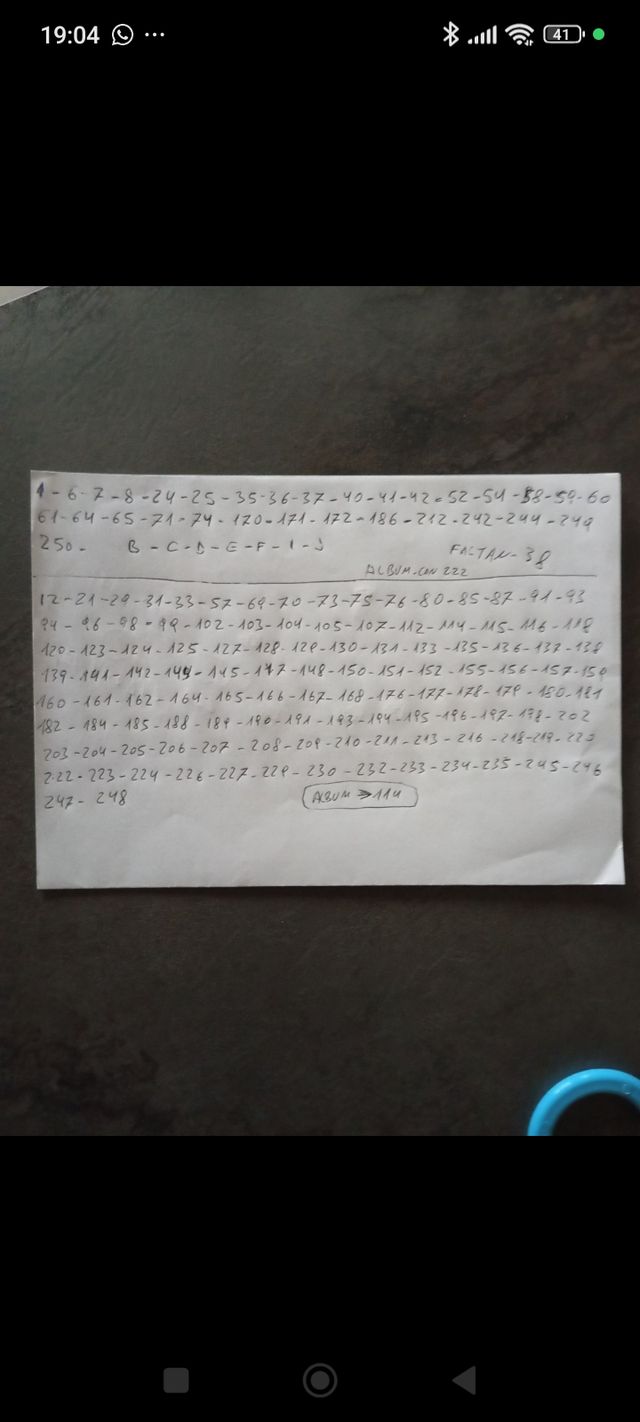 19:04 41
1-6-7-8-24-25-35-36-37-40-41-42-52-54-58-59-60
61-64-65-71-74-170-171-172-186-212-242-244-249
250- B-C-D-E-F-I-J FALTAN-38
ALBUM-CON 222
12-21-29-31-33-57-69-70-73-75-76-80-85-87-91-93
94-96-98-99-102-103-104-105-107-112-114-115-116-118
120-123-124-125-127-128-129-130-131-133-135-136-137-138
139-141-142-144-145-147-148-150-151-152-155-156-157-159
160-161-162-164-165-166-167-168-176-177-178-179-180-181
182-184-185-188-189-190-191-193-194-195-196-197-198-202
203-204-205-206-207-208-209-210-211-213-216-218-219-220
222-223-224-226-227-229-230-232-233-234-235-245-246
247-248 ALBUM → 114